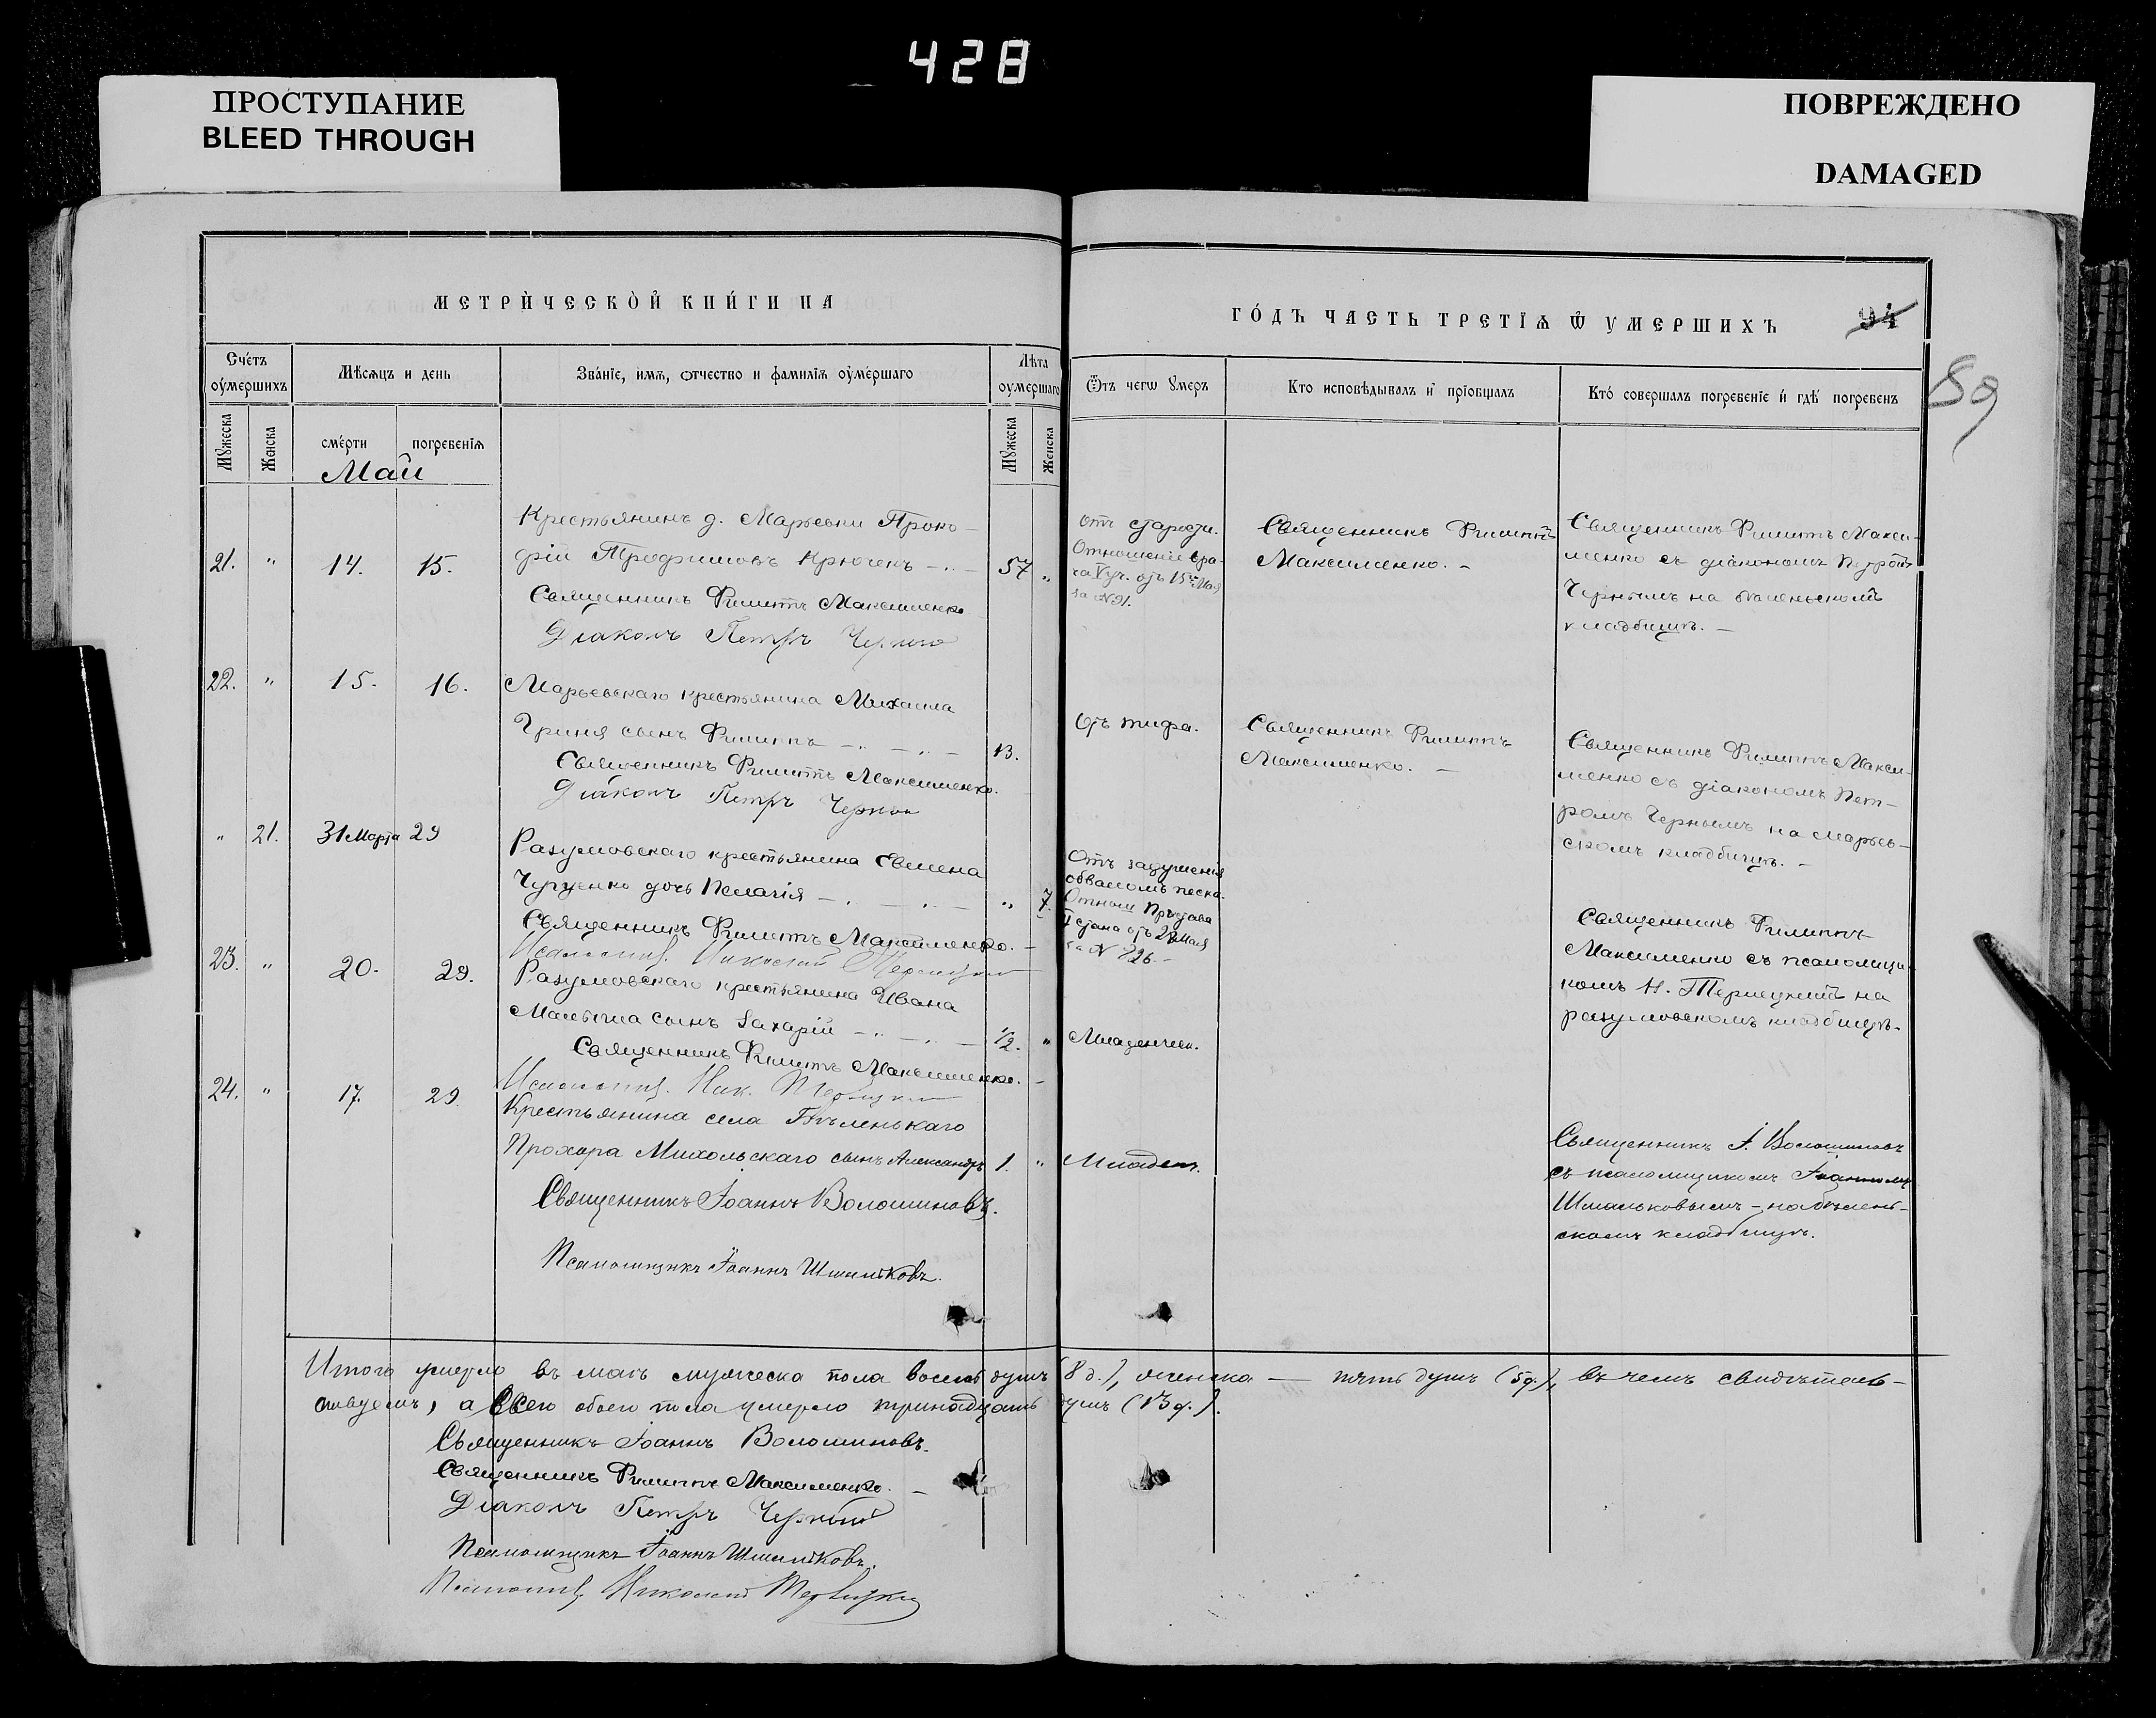 428
ПРОСТУПАНИЕ
BLEED THROUGH
ПОВРЕЖДЕНО
DAMAGED
МЕТРИЧЕСКОЙ КНИГИ НА
ГОДЪ ЧАСТЬ ТРЕТІѦ Ѿ УМЕРШИХЪ
94
59
Счетъ оумершихъ
Мѣсѧцъ и день
Званіе, имѧ, отчество и фамиліѧ оумершаго
Лѣта оумершаго
Ѿтъ чегѡ Умеръ
Кто исповѣдывалъ и пріобщалъ
Кто совершалъ погребеніе и гдѣ погребенъ
Мужеска
Женска
смерти
погребеніѧ
Мужеска
Женска
Май
21. " 14. 15.
Крестьянинъ д. Марьевки Проко-
фій Трофимовъ Крючек
57 "
Священникъ Филиппъ Максименко
Діаконъ Петръ Черный
отъ старости.
Отношеніе вра-
ча V уч. отъ 15 Мая
за № 91.
Священникъ Филиппъ
Максименко. –
Священникъ Филиппъ Макси-
менко съ діакономъ Петромъ
Чернымъ на
кладбищѣ. –
22. " 15. 16.
Марьевскаго крестьянина Михаила
Гриня сынъ Филиппъ
13.
Священникъ Филиппъ Максименко.
Діаконъ Петръ Черный
Отъ тифа.
Священникъ Филиппъ
Максименко. –
Священникъ Филиппъ Макси-
менко съ діакономъ Пет-
ромъ Чернымъ на Марьев-
скомъ кладбищѣ. –
" 21. 31 Марта 29
Разумовскаго крестьянина Семена
дочь Пелагія
" 7.
Священникъ Филиппъ Максименко. –
Псаломщ. Николай Тервицкій
Отъ задушенія
обваломъ песка.
Отнош Пристава
стана отъ 28 Мая
за № 726 –
Священникъ Филиппъ
Максименко съ псаломщи-
комъ Н. на
разумовскомъ кладбищѣ.
23. " 20. 29.
Разумовскаго крестьянина Ивана
сынъ Захарій
1/2. "
Священникъ Филиппъ Максименко. –
Псаломщ. Ник. Тервицкій
Младенческ.
24. " 17. 29
Крестьянина села Бѣленькаго
Прохора Михольскаго сынъ Александръ
1. "
Священникъ Іоаннъ Волошиновъ.
Псаломщикъ Іоаннъ Шмальковъ.
Младен.
Священникъ І. Волошиновъ
съ псаломщикомъ Іоанномъ
Шмальковымъ – на бѣлень-
скомъ кладбищѣ.
Итого умерло въ маѣ мужеска пола восемь душъ (8 д.), женска — пять душъ (5 д.), въ чемъ свидѣтель-
ствуемъ, а всего обоего пола умерло тринадцать душъ (13 д.).
Священникъ Іоаннъ Волошиновъ.
Священникъ Филиппъ Максименко. –
Діаконъ Петръ Черный
Псаломщикъ Іоаннъ Шмальковъ.
Псаломщ. Николай Тервицкій